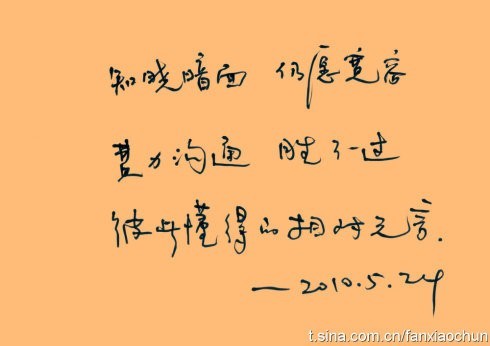 知晓暗面 仍愿宽容
费力沟通 胜不过
彼此懂得的相对无言.
—2010.5.24
t.sina.com.cn/fanxiaochun